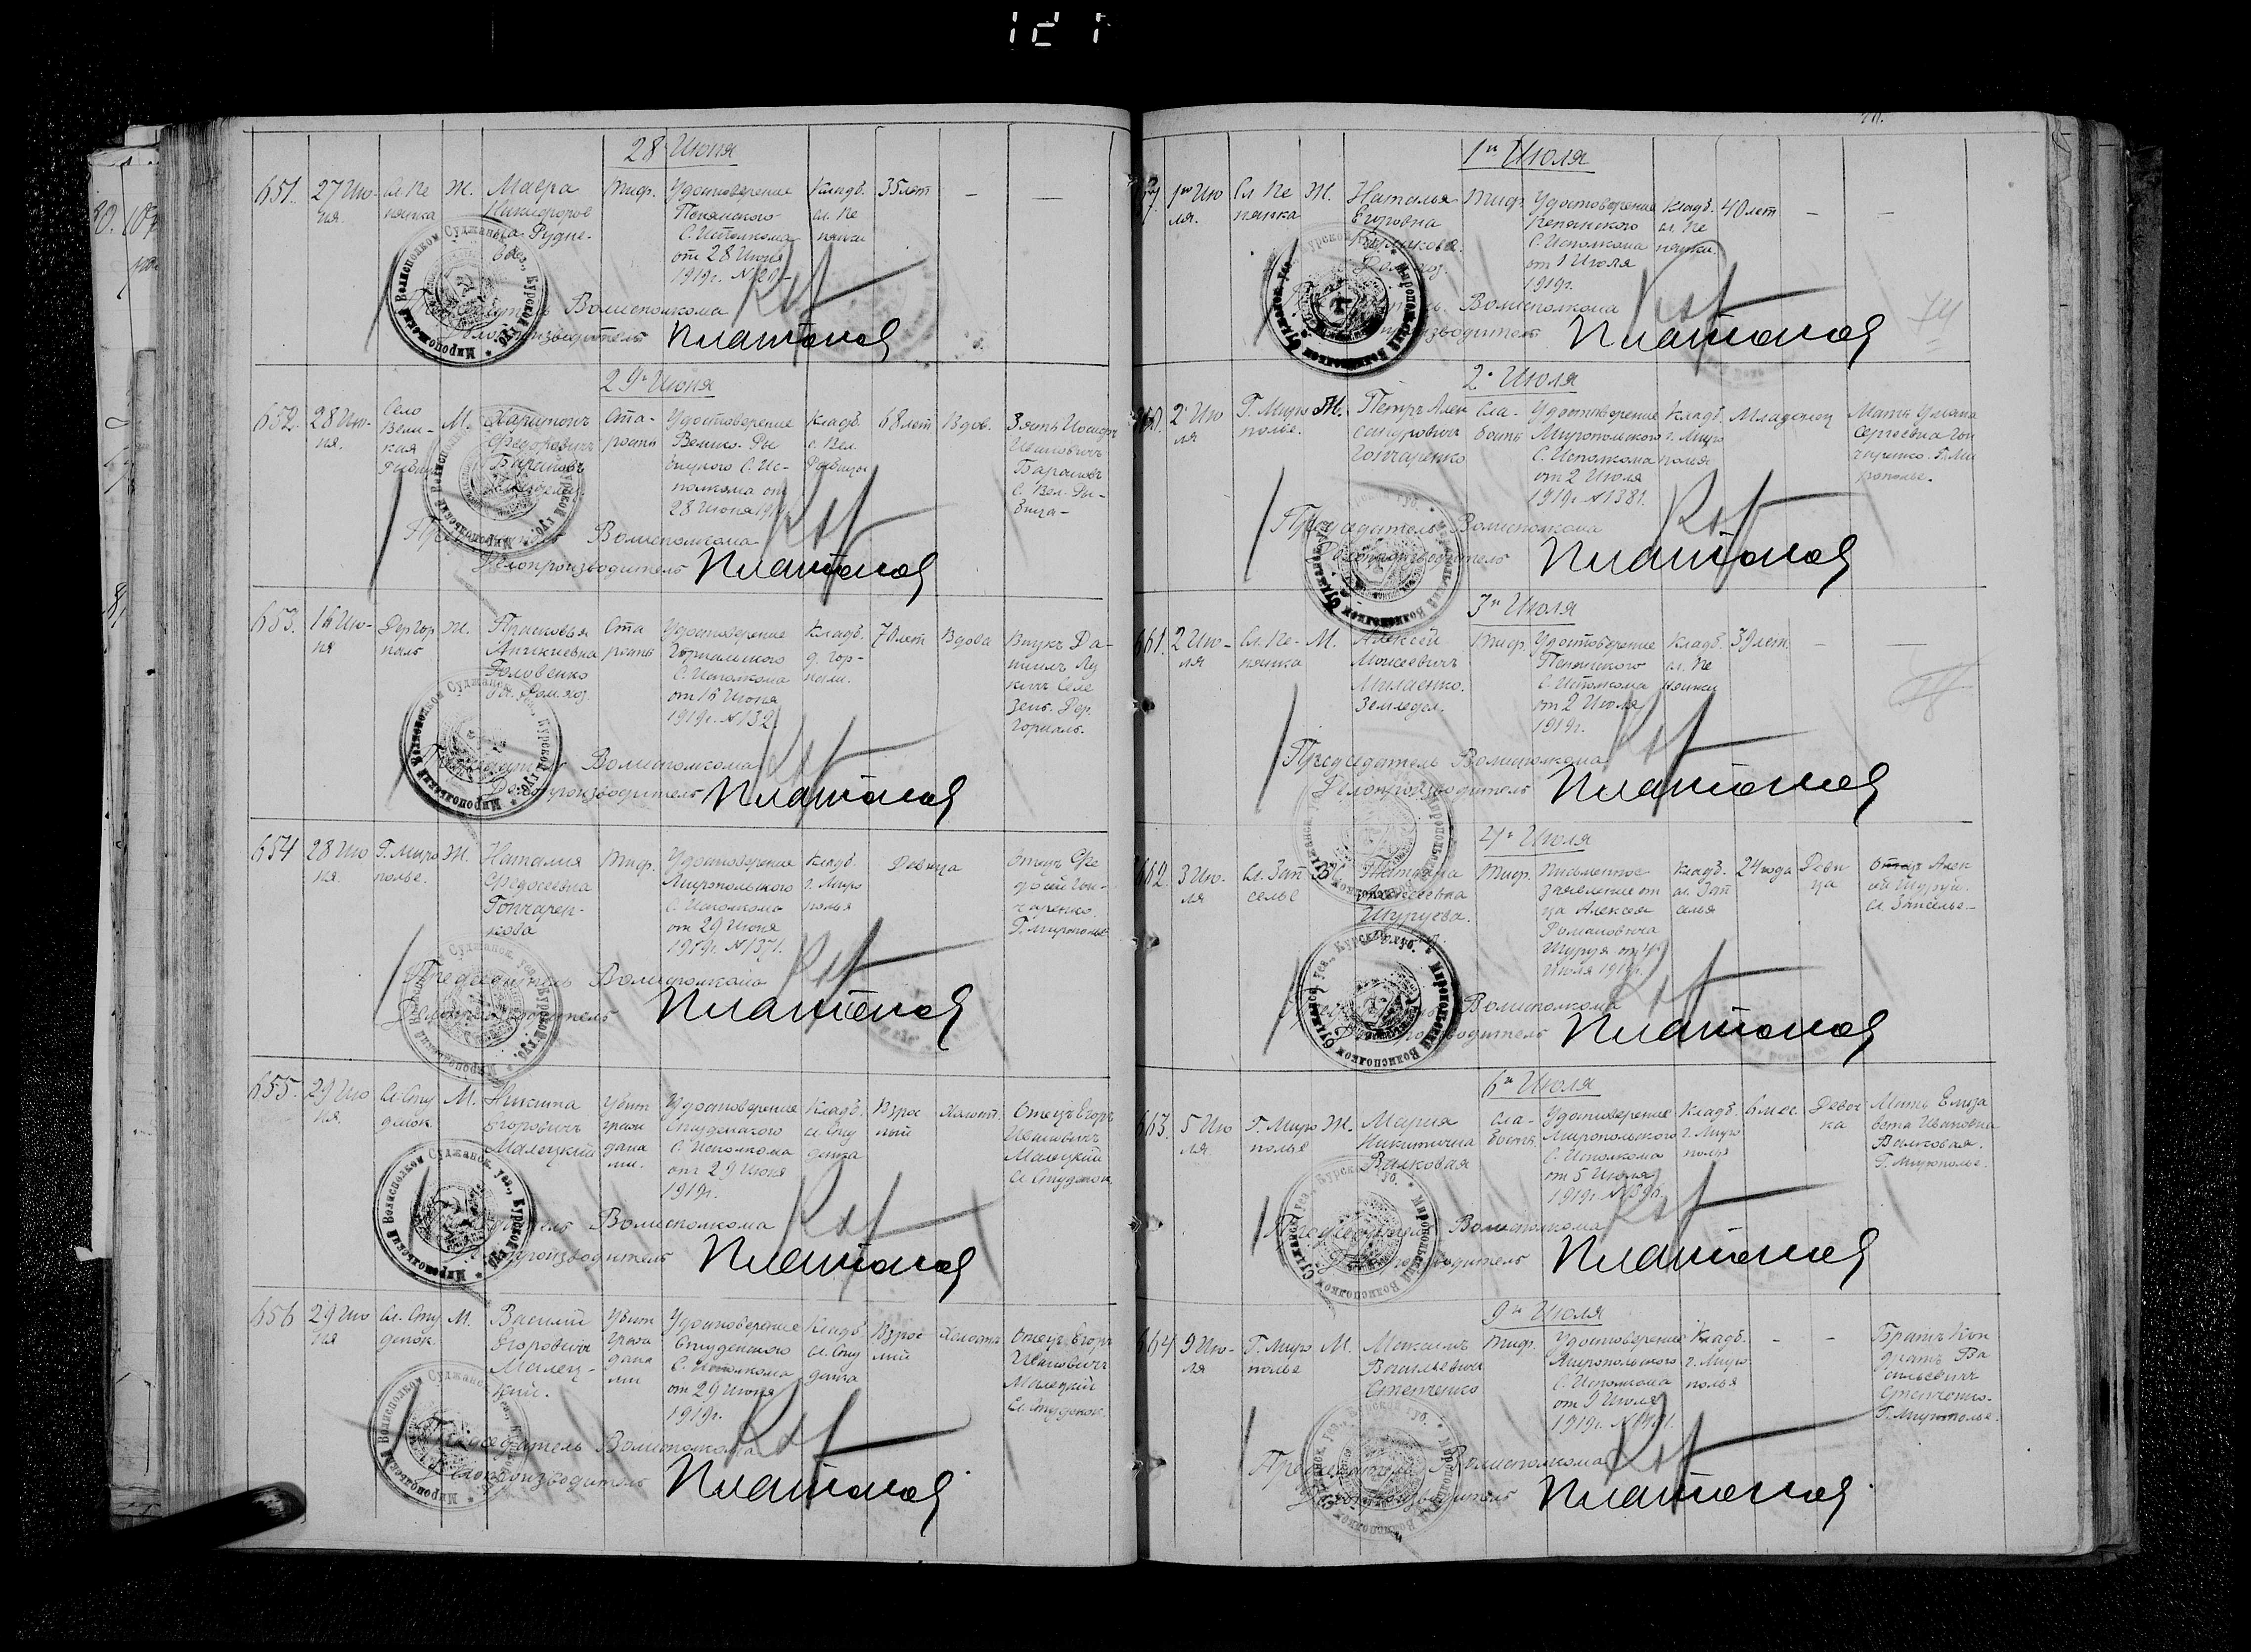 28 Июня
651. 27 Ию-ня. Сл. Пе нянка Ж. Мавра Никифоров на Рудне-ва. Тиф. Удостоверение Пенянского С. Исполкома от 28 Июня 1919 г. Кладб. сл. Пе нянки 35 лет — —
Волисполкома
Делопроизводитель Платонов
29 Июня
652. 28 Ию-ня. Село Вели-кая Рыбица М. Харитонъ Федоровичъ Барановъ Ста-рость Удостоверение Велико-Ры бицкого С. Ис-полкома от 28 Июня 1919 Кладб. с. Вел. Рыбицы 68 лет Вдов. Зять Иосифъ Ивановичъ Барановъ С. Вел. Ры-бица —
Председатель Волисполкома
Делопроизводитель Платонов
653. 16 Ию-ня Дер. Гор наль Ж. Прасковья Головенко Дом. хоз. Ста рость Удостоверение Горнальского С. Исполкома от 16 Июня 1919 г. N 132. Кладб. д. Гор-нали. 70 лет Вдова Внукъ Да-ниилъ Лу кичъ Селе зень. Дер. Горналь.
Председатель Волисполкома
Делопроизводитель Платонов
654 28 Ию ня. Г. Миро полье. Ж. Наталия Федосеевна Гончарен-кова Тиф. Удостоверение Миропольского С. Исполкома от 29 Июня 1919 г. N 1371. Кладб. г. Миро полья Девица Отец Фе досей Гон-чаренко. Г. Мирополье
Председатель Волисполкома
Делопроизводитель Платонов
655. 29 Ию ня. Сл. Сту денок. М. Никита Егоровичъ Малецкий Убит граж дана ми. Удостоверение Студенского С. Исполкома от 29 Июня 1919 г. Кладб. сл. Сту денка Взрос лый Холост. Отецъ Егоръ Ивановичъ Малецкий Сл. Студенок
Волисполкома
Делопроизводитель Платонов
656 29 Ию ня Сл. Сту денок. М. Василий Егоровичъ Малец-кий. Убит граж дана ми Удостоверение Студенского С. Исполкома от 29 Июня 1919 г. Кладб. сл. Сту денка Взрос лый Холостъ Отецъ Егоръ Ивановичъ Малецкий Сл. Студенок.
Председатель Волисполкома
Делопроизводитель Платонов
1го Июля
1го Ию ля. Сл. Пе нянка Ж. Наталья Егоровна Тиф. Удостоверение Пенянского С. Исполкома от 1 Июля 1919 г. Кладб. сл. Пе нянки. 40 лет — —
Волисполкома
Делопроизводитель Платонов
74
2го Июля
2 Ию ля Г. Миро полье. М. Петръ Алек сандровичъ Гончаренко Сла-бость Удостоверение Миропольского С. Исполкома от 2 Июля 1919 г. N 1381. Кладб. г. Миро полья Младенец Мать Ульяна Сергеевна Гон чаренко. Г. Ми рополье.
Председатель Волисполкома
Делопроизводитель Платонов
3го Июля
661. 2 Ию-ля Сл. Пе-нянка М. Алексей Моисеевичъ Милаенко. Земледел. Тиф. Удостоверение Пенянского С. Исполкома от 2 Июля 1919 г. Кладб. сл. Пе нянки 39 лет. — —
Председатель Волисполкома
Делопроизводитель Платонов
4го Июля
662. 3 Ию-ля Сл. Зап селье Ж. Татьяна Алексеевна Шуруева. Тиф. Письменное заявление от ца Алексея Романовича Шуруя от 4 Июля 1919 г. Кладб. сл. Зап селья 24 года Деви ца Отец Алек сей Шуруй. Сл. Запселье —
Волисполкома
Делопроизводитель Платонов
6го Июля
663. 5 Ию ля. Г. Миро полье Ж. Мария Никитична Валковая Сла-бость. Удостоверение Миропольского С. Исполкома от 5 Июля 1919 г. Кладб. г. Миро полья 6 мес. Девоч ка Мать Елиза вета Ивановна Валковая. Г. Мирополье.
Председатель Волисполкома
Делопроизводитель Платонов
9го Июля
664 9 Ию-ля Г. Миро полье М. Максимъ Васильевич Степченко Тиф. Удостоверение Миропольского С. Исполкома от 9 Июля 1919 г. Кладб. г. Миро полья — — Братъ Кон дратъ Ва сильевичъ Степченко. Г. Мирополье.
Председатель Волисполкома
Делопроизводитель Платонов
Миропольский Волисполком Суджанск. уез., Курской губ.